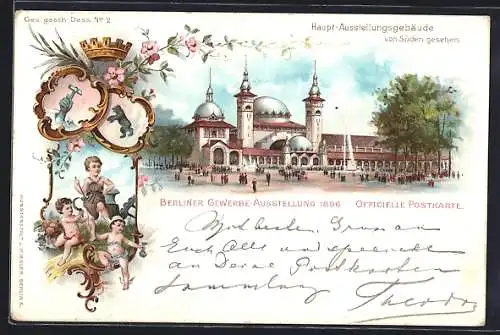 Ges. gesch. Dess. No 2.
Haupt-Ausstellungsgebäude
von Süden gesehen.
BERLINER GEWERBE-AUSSTELLUNG 1896 OFFICIELLE POSTKARTE.
Mit besten Gruss an
Euch Alle und
an Deine Postkarten
Sammlung Theodor